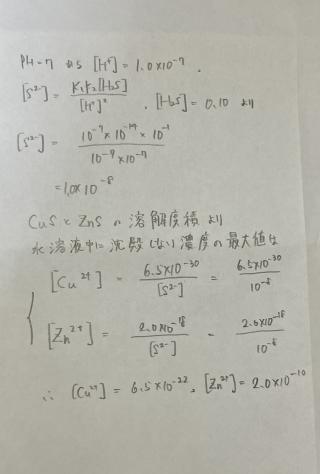 PH=7 から [H⁺] = 1.0×10⁻⁷ .
[S²⁻] = K₁K₂[H₂S] / [H⁺]² , [H₂S] = 0.10 より
[S²⁻] = 10⁻⁷×10⁻¹⁴×10⁻¹ / 10⁻⁷×10⁻⁷
= 1.0×10⁻⁸
CuSとZnS の 溶解度積 より
水溶液中に沈殿しない濃度の最大値は
[Cu²⁺] = 6.5×10⁻³⁰ / [S²⁻] = 6.5×10⁻³⁰ / 10⁻⁸
[Zn²⁺] = 2.0×10⁻¹⁸ / [S²⁻] = 2.0×10⁻¹⁸ / 10⁻⁸
∴ [Cu²⁺] = 6.5×10⁻²², [Zn²⁺] = 2.0×10⁻¹⁰